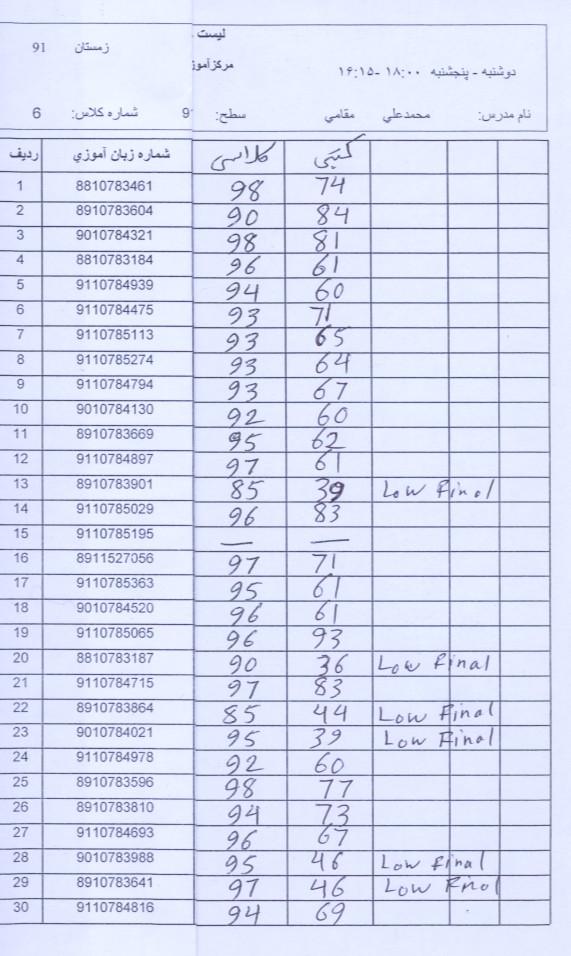 لیست
زمستان 91
مرکزآموز
دوشنبه - پنجشنبه ۱۸:۰۰ -۱۶:۱۵
نام مدرس: محمدعلي مقامي سطح: 9 شماره کلاس: 6
ردیف شماره زبان آموزي کلاسی کتبی
1 8810783461 98 74
2 8910783604 90 84
3 9010784321 98 81
4 8810783184 96 61
5 9110784939 94 60
6 9110784475 93 71
7 9110785113 93 65
8 9110785274 93 64
9 9110784794 93 67
10 9010784130 92 60
11 8910783669 95 62
12 9110784897 97 61
13 8910783901 85 39 Low Final
14 9110785029 96 83
15 9110785195 — —
16 8911527056 97 71
17 9110785363 95 61
18 9010784520 96 61
19 9110785065 96 93
20 8810783187 90 36 Low Final
21 9110784715 97 83
22 8910783864 85 44 Low Final
23 9010784021 95 39 Low Final
24 9110784978 92 60
25 8910783596 98 77
26 8910783810 94 73
27 9110784693 96 67
28 9010783988 95 46 Low Final
29 8910783641 97 46 Low Final
30 9110784816 94 69